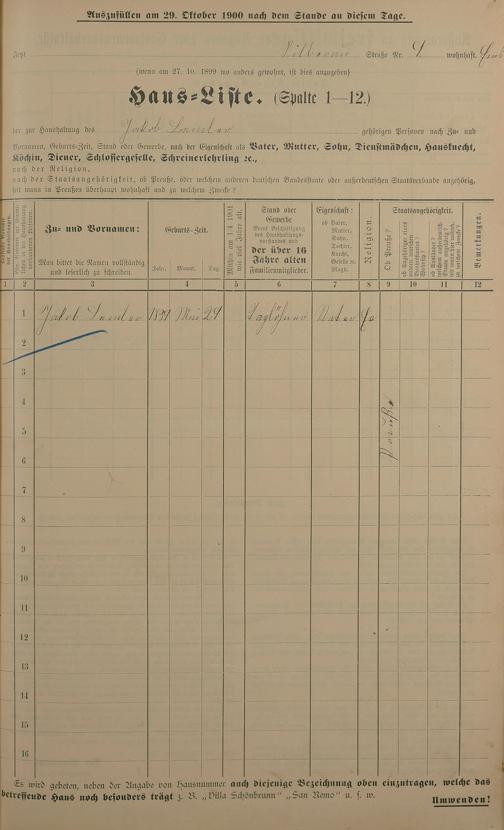 Auszufüllen am 29. Oktober 1900 nach dem Stande an diesem Tage.
Straße Nr. wohnhaft
(wenn am 27. 10. 1899 wo anders gewohnt, ist dies anzugeben)
Haus-Liste. (Spalte 1—12.)
der zur Haushaltung des Jakob gehörigen Personen nach Zu- und
Vornamen, Geburts-Zeit, Stand oder Gewerbe, nach der Eigenschaft als Vater, Mutter, Sohn, Dienstmädchen, Hausknecht,
Köchin, Diener, Schlossergeselle, Schreinerlehrling ꝛc.,
nach der Religion,
nach der Staatsangehörigkeit, ob Preuße, oder welchem anderen deutschen Bundesstaate oder außerdeutschen Staatsverbande angehörig,
seit wann in Preußen überhaupt wohnhaft und zu welchem Zwecke?
Zu- und Vornamen:
Man bittet die Namen vollständig
und leserlich zu schreiben.
Geburts-Zeit.
Jahr. Monat. Tag.
Mithin am 1/4 1901
wie viel Jahre alt.
Stand oder
Gewerbe
des
Haushaltungs-
vorstandes und
der über 16
Jahre alten
Familienmitglieder.
Eigenschaft:
ob Vater,
Mutter,
Sohn,
Tochter,
Knecht,
Geselle u.
Magd.
Religion.
Staatsangehörigkeit.
Ob Preuße?
Bemerkungen.
1 2 3 4 5 6 7 8 9 10 11 12
1 Jakob Mai Taglöhner Vater
2
3
4
5
6
7
8
9
10
11
12
13
14
15
16
Preuße
Es wird gebeten, neben der Angabe von Hausnummer auch diejenige Bezeichnung oben einzutragen, welche das
betreffende Haus noch besonders trägt z. B. „Villa Schönbrunn" „San Remo" u. s. w.
Umwenden!